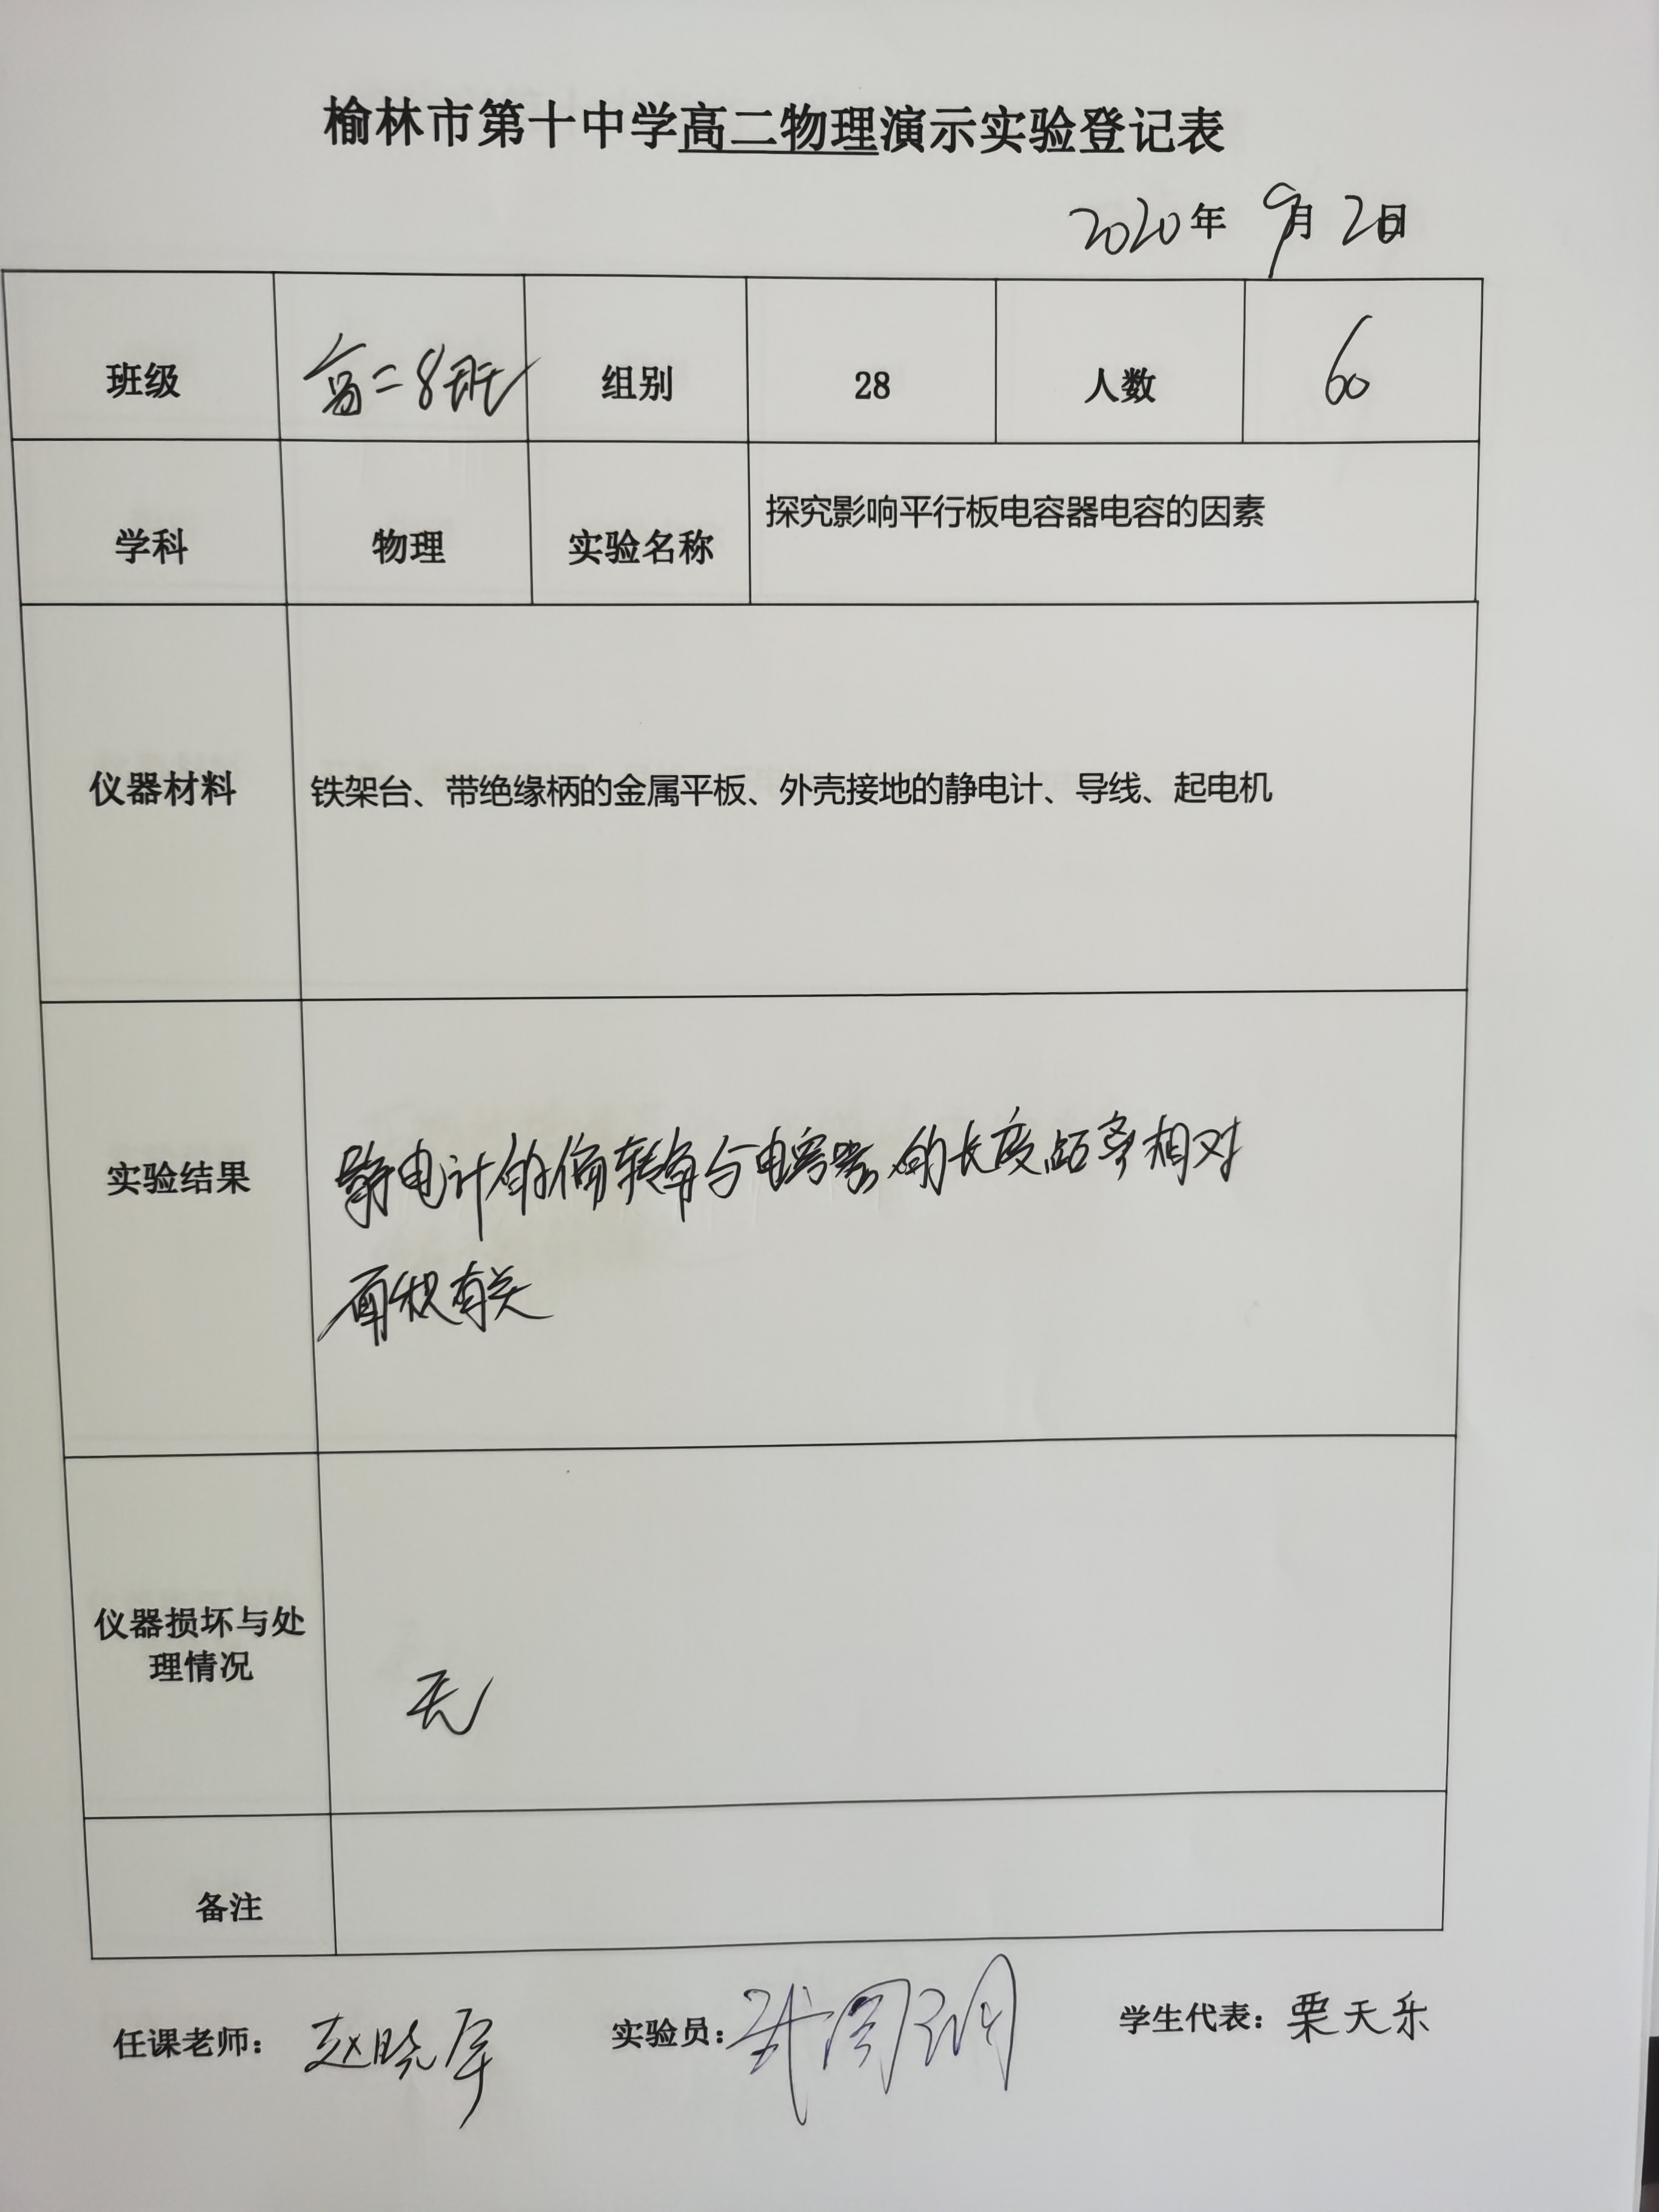 榆林市第十中学高二物理演示实验登记表
2020年 9月 20日
班级 高二8班 组别 28 人数 60
学科 物理 实验名称 探究影响平行板电容器电容的因素
仪器材料 铁架台、带绝缘柄的金属平板、外壳接地的静电计、导线、起电机
实验结果 静电计的偏转角与电容器的长度距离相对
面积有关
仪器损坏与处
理情况 无
备注
任课老师： 赵晓军 实验员： 学生代表：栗天乐